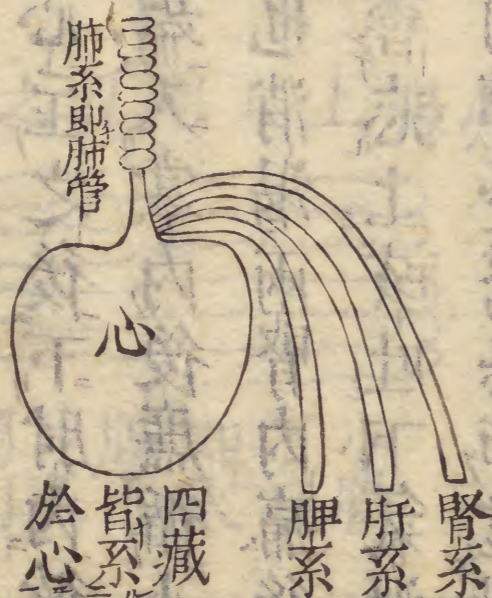 肺系即肺管
心
腎系
肝系
脾系
四藏
皆系
於心